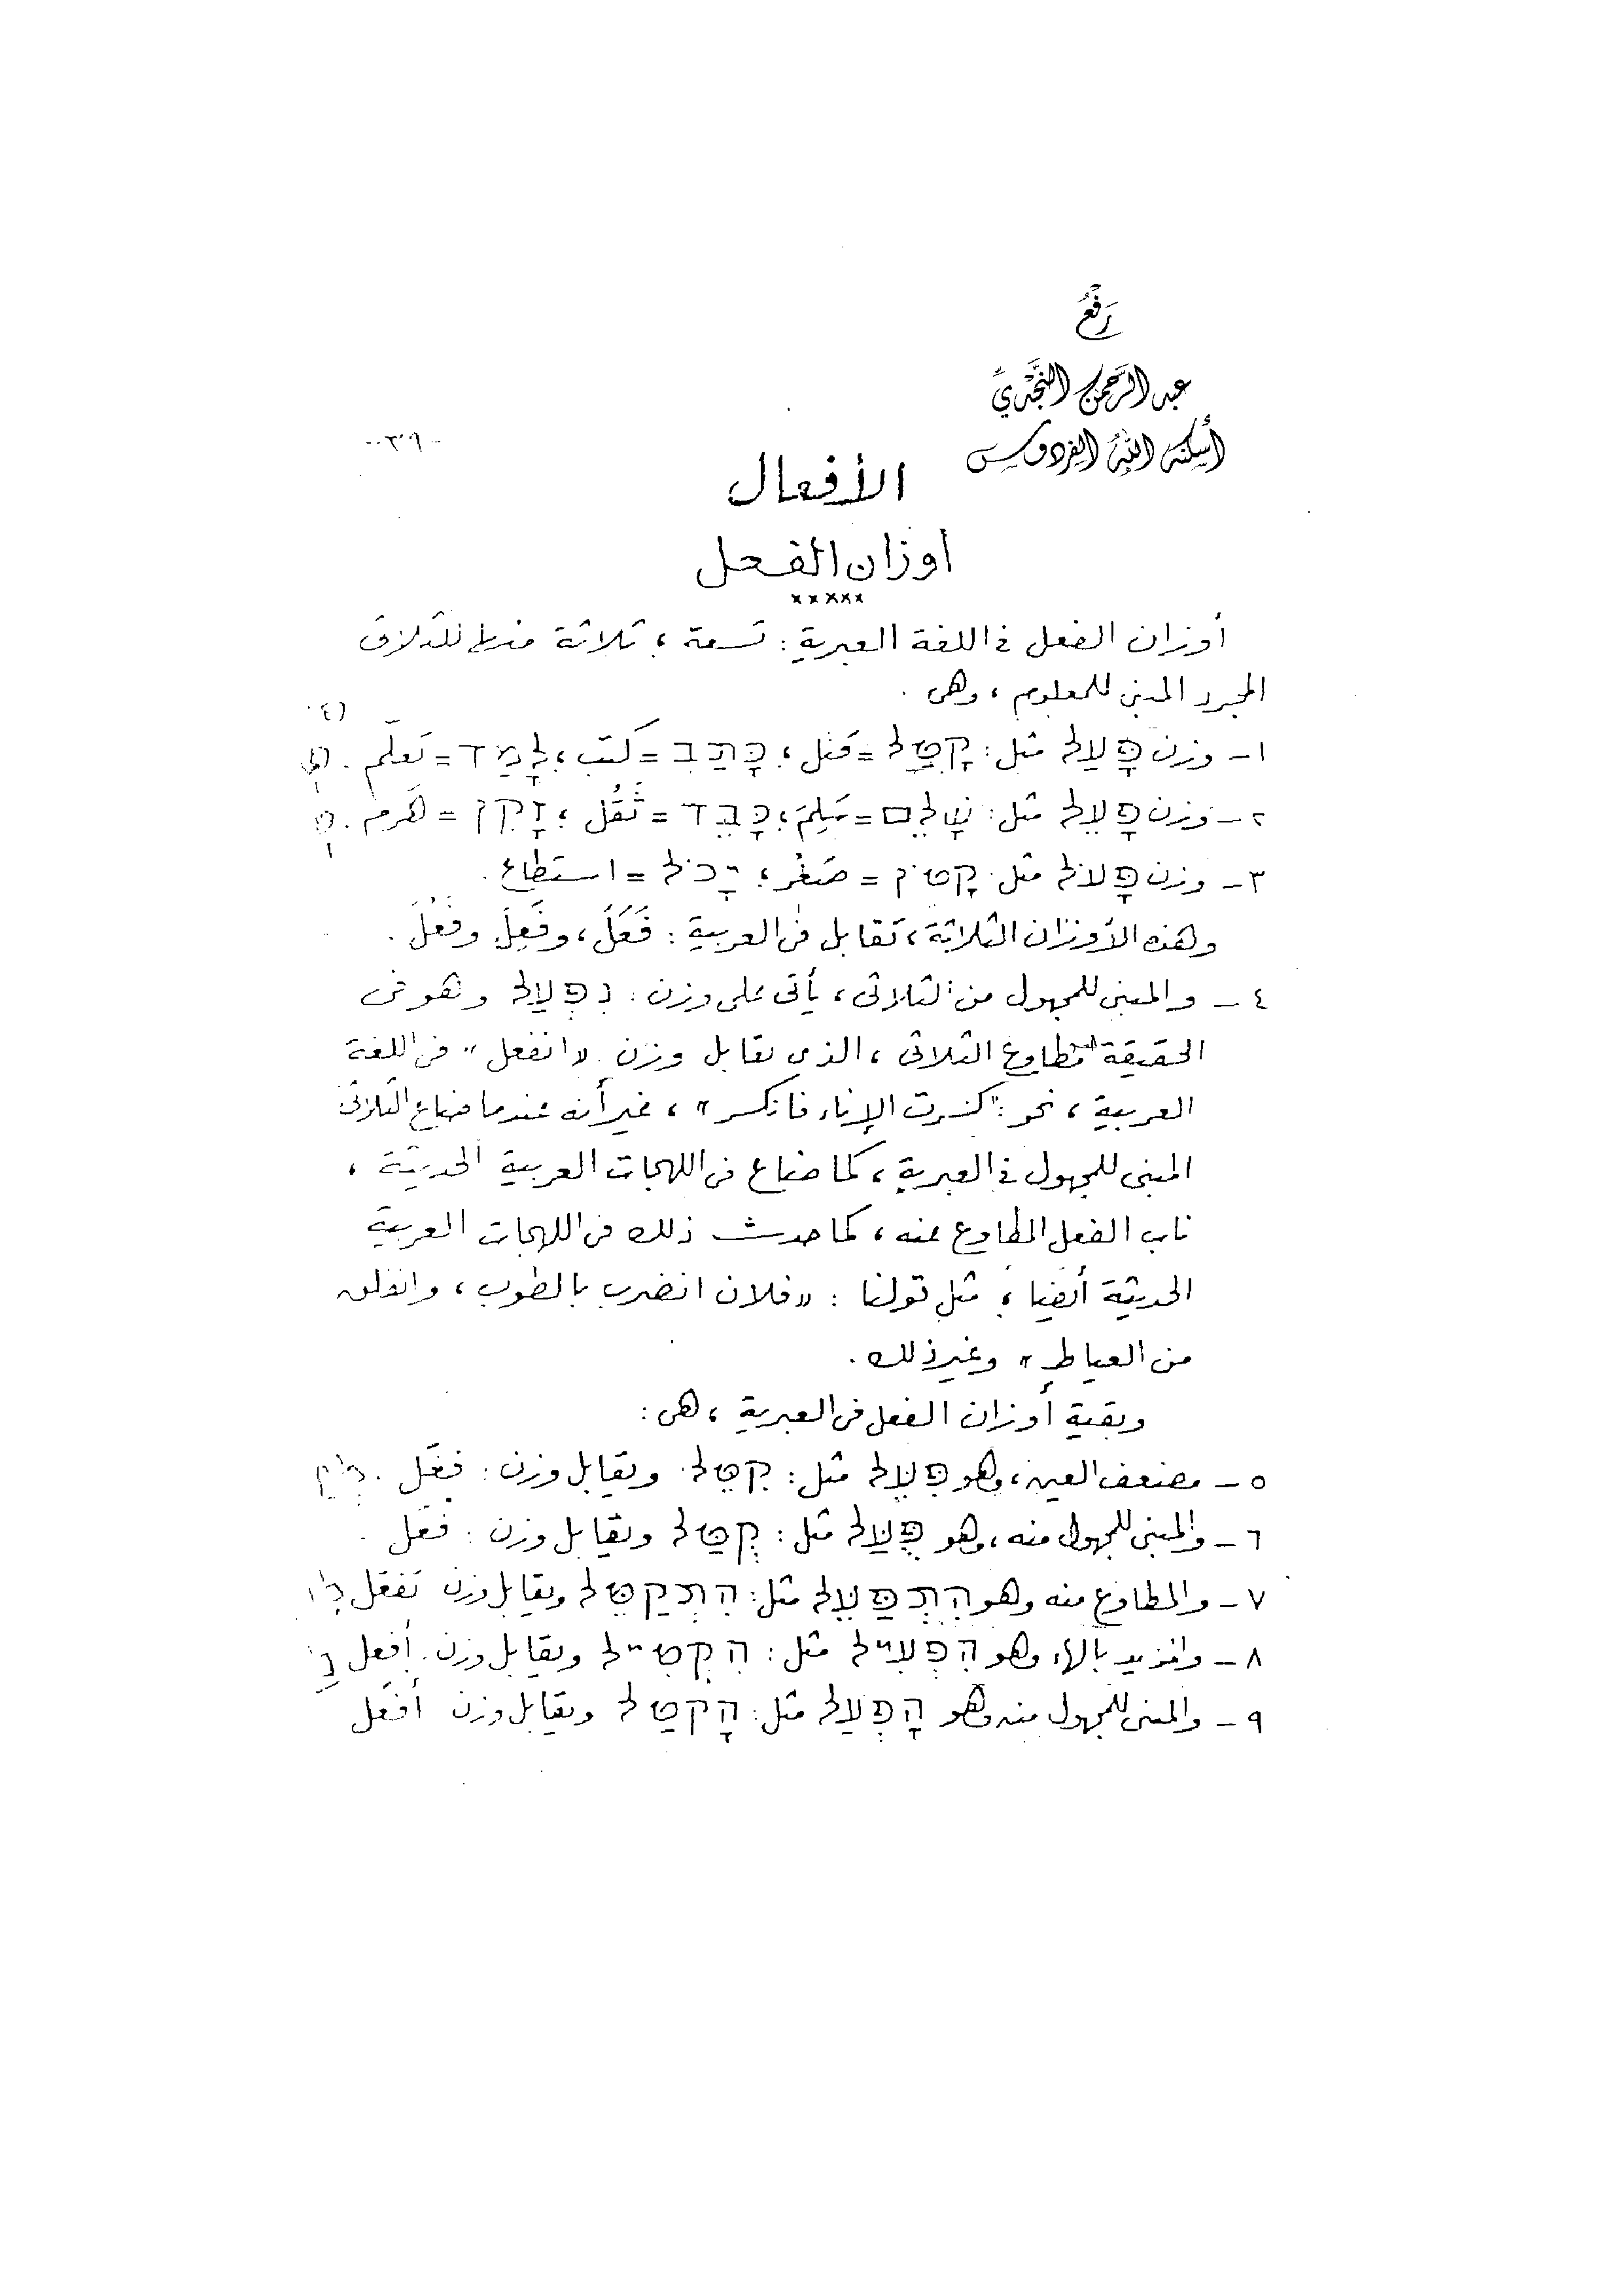 رَفْعُ
عبد الرَّحمن النَّجْديِّ
أسكنه اللهُ الفردوس
-٣٩-
الأفعال
أوزان الفعل
×××××
أوزان الفعل فى اللغة العبرية : تسعة ؛ ثلاثة منها للثلاثى
المجرد المبنى للمعلوم ، وهى .
١- وزن פָּעַל مثل : קָטַל = قتل ؛ כָּתַב = كتب ؛ לָמַד = تعلّم .
٢- وزن פָּעֵל مثل : שָׁלֵם = سَلِمَ ؛ כָּבֵד = ثَقُل ؛ זָקֵן = هَرم .
٣- وزن פָּעֹל مثل קָטֹן = صَغُر ؛ יָכֹל = استطاع .
وهذه الأوزان الثلاثة ، تقابل فى العربية : فَعَلَ ، وفَعِلَ وفَعُلَ .
٤- والمبنى للمجهول من الثلاثى ، يأتى على وزن : נִפְעַל وهو فى
الحقيقة مطاوع الثلاثى ، الذى يقابل وزن « انفعل » فى اللغة
العربية ، نحو : « كسرت الإناء فانكسر » ، غير أنه عندما ضاع الثلاثى
المبنى للمجهول فى العبرية ، كما ضاع فى اللهجات العربية الحديثة ،
ناب الفعل المطاوع عنه ، كما حدث ذلك فى اللهجات العربية
الحديثة أيضا ؛ مثل قولنا : « فلان انضرب بالطوب ، وانفلق
من العياط » وغير ذلك .
وبقية أوزان الفعل فى العبرية ، هى :
٥- مضعف العين ، وهو פִּעֵל مثل : קִטֵּל ويقابل وزن : فعّل .
٦- والمبنى للمجهول منه ، وهو פֻּעַל مثل : קֻטַּל ويقابل وزن : فعّل .
٧- والمطاوع منه وهو הִתְפַּעֵל مثل : הִתְקַטֵּל ويقابل وزن تفعّل
٨- والمزيد بالهاء وهو הִפְעִיל مثل : הִקְטִיל ويقابل وزن . أفعل
٩- والمبنى للمجهول منه وهو הָפְעַל مثل : הָקְטַל ويقابل وزن أفعل